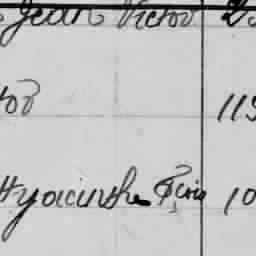 Jean Victor 2
tor 119
Hyacinthe 10